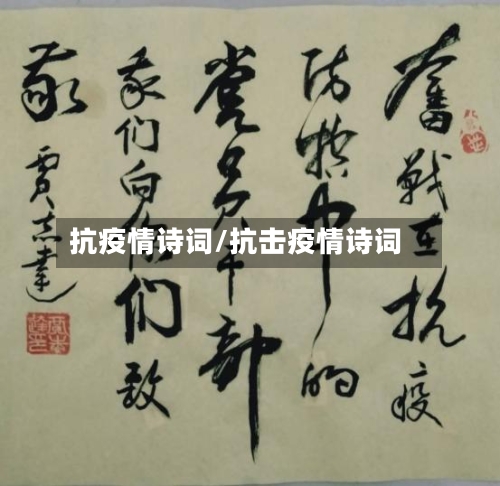 奮戰在抗疫
防中的
党员干部
我们向你们致
敬
抗疫情诗词/抗击疫情诗词